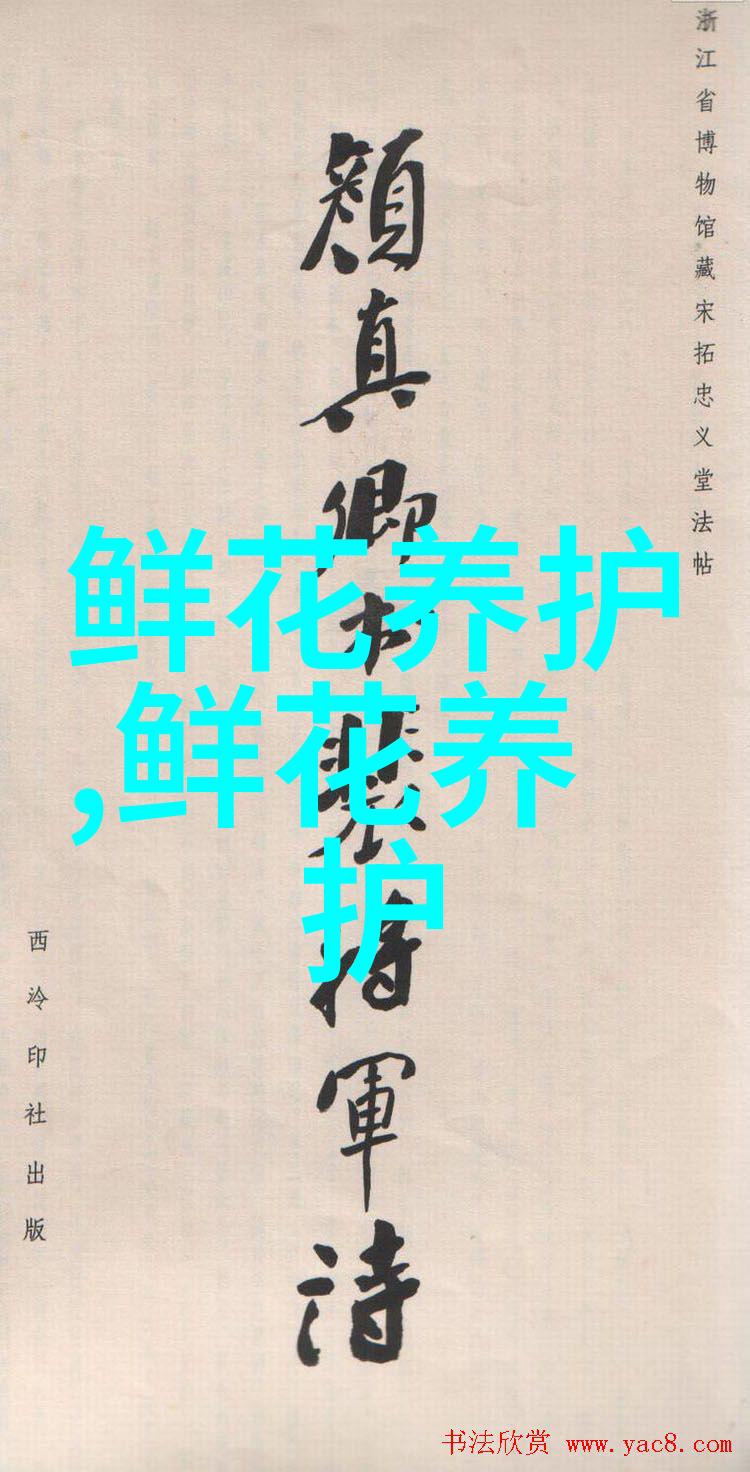 浙江省博物馆藏宋拓忠义堂法帖
顔真卿書裴将軍詩
鲜花养护
,鲜花养
护
西泠印社出版
书法欣赏 www.yac8.com